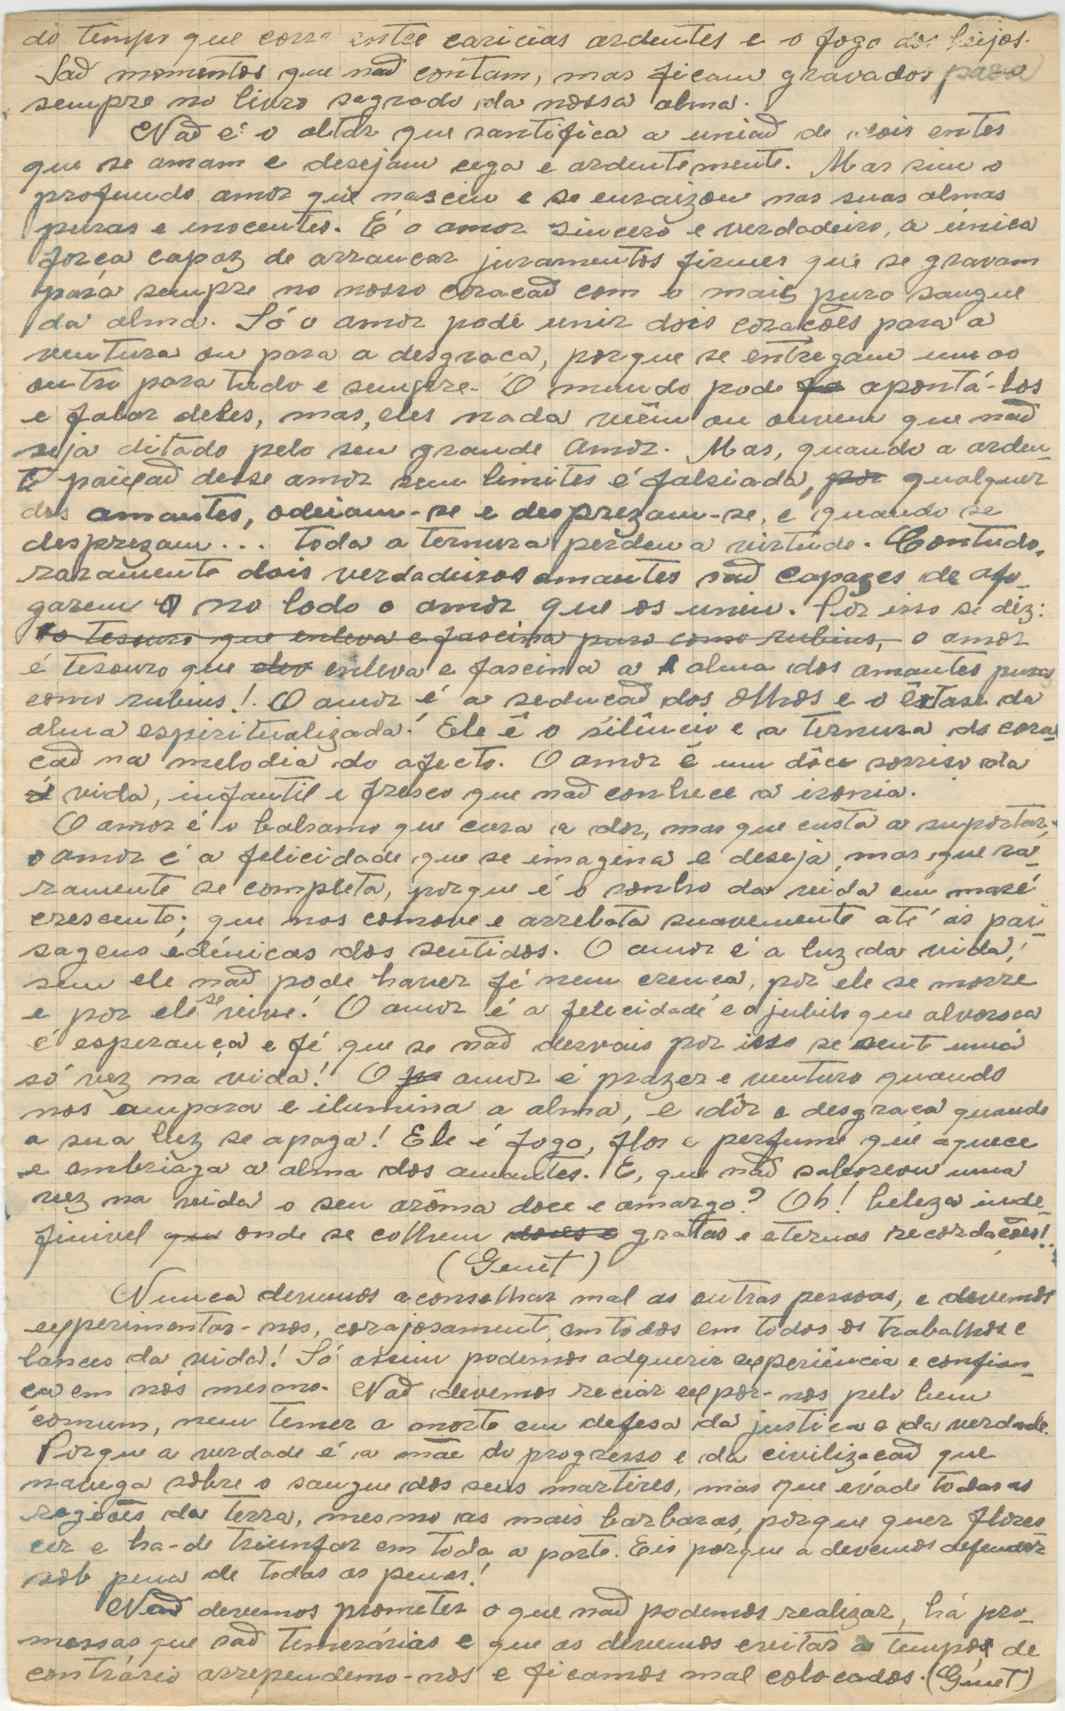 do tempo que corre entre caricias ardentes e o fogo dos beijos.
Saõ momentos que naõ contam, mas ficam gravados para
sempre no livro sagrado da nossa alma.
Naõ é o altar que santifica a uniaõ de dois entes
que se amam e desejam cega e ardentemente. Mas sim o
profundo amor que nasceu e se enraizou nas suas almas
puras e inocentes. É o amor sincero e verdadeiro, a única
força capaz de arrancar juramentos firmes que se gravam
para sempre no nosso coraçaõ com o mais puro sangue
da alma. Só o amor pode unir dois corações para a
ventura ou para a desgraça, porque se entregam um ao
outro para tudo e sempre. O mundo pode apontá-los
e falar deles, mas, eles nada vêem ou ouvem que naõ
seja ditado pelo seu grande amor. Mas, quando a arden-
te paixaõ desse amor sem limites é falsiada, por qualquer
dos amantes, odeiam-se e desprezam-se, e quando se
desprezam... toda a ternura perdeu a virtude. Contudo,
raramente dois verdadeiros amantes saõ capazes de afo-
garem no lodo o amor que os uniu. Por isso se diz:
o tesouro que enleva e fascina puro como rubins, o amor
é tesouro que enleva e fascina a alma dos amantes puros
como rubins! O amor é a seduçaõ dos olhos e o êxtase da
alma espiritualizada! Ele é o silêncio e a ternura do cora-
çaõ na melodia do afecto. O amor é um dôce sorriso da
vida, infantil e fresco que naõ conhece a ironia.
O amor é o balsamo que cura a dor, mas que custa a suportar,
o amor é a felicidade que se imagina e deseja, mas que ra-
ramente se completa, porque é o sonho da vida em maré
crescente; que nos comove e arrebata suavemente até ás pai-
sagens edénicas dos sentidos. O amor é a luz da vida!
sem ele naõ pode haver fé nem crença, por ele se morre
e por ele se vive! O amor é a felicidade é o jubilo que alvoroça
é esperança e fé que se naõ desvais por isso se sente uma
só vez na vida! O amor é prazer e ventura quando
nos ampara e ilumina a alma, e dôr e desgraça quando
a sua luz se apaga! Ele é fogo, flor e perfume que aquece
e embriaga a alma dos amantes. E, que naõ saboreou uma
vez na vida o seu arôma doce e amargo? Oh! beleza inde-
finivel que onde se colhem gratas e eternas recordações!
(Genet)
Nunca devemos aconselhar mal as outras pessoas, e devemos
experimentar-nos, corajosamente, em todos em todos os trabalhos e
lances da vida! Só assim podemos adquerir experiência e confian-
ça em nós mesmo. Naõ devemos reciar expôr-nos pelo bem
comum, nem temer a morte em defesa da justiça e da verdade.
Porque a verdade é a mãe do progresso e da civilizaçaõ que
navega sôbre o sangue dos seus martires, mas que evade todas as
regiões da terra, mesmo as mais barbaras, porque quer flores-
cer e ha-de triunfar em toda a parte. Eis porque a devemos defender
sob pena de todas as penas!
Naõ devemos prometer o que naõ podemos realizar, há pro-
messas que saõ temerárias e que as devemos evitar a tempo, de
contrário arrependemo-nos e ficamos mal colocados. (Genet)